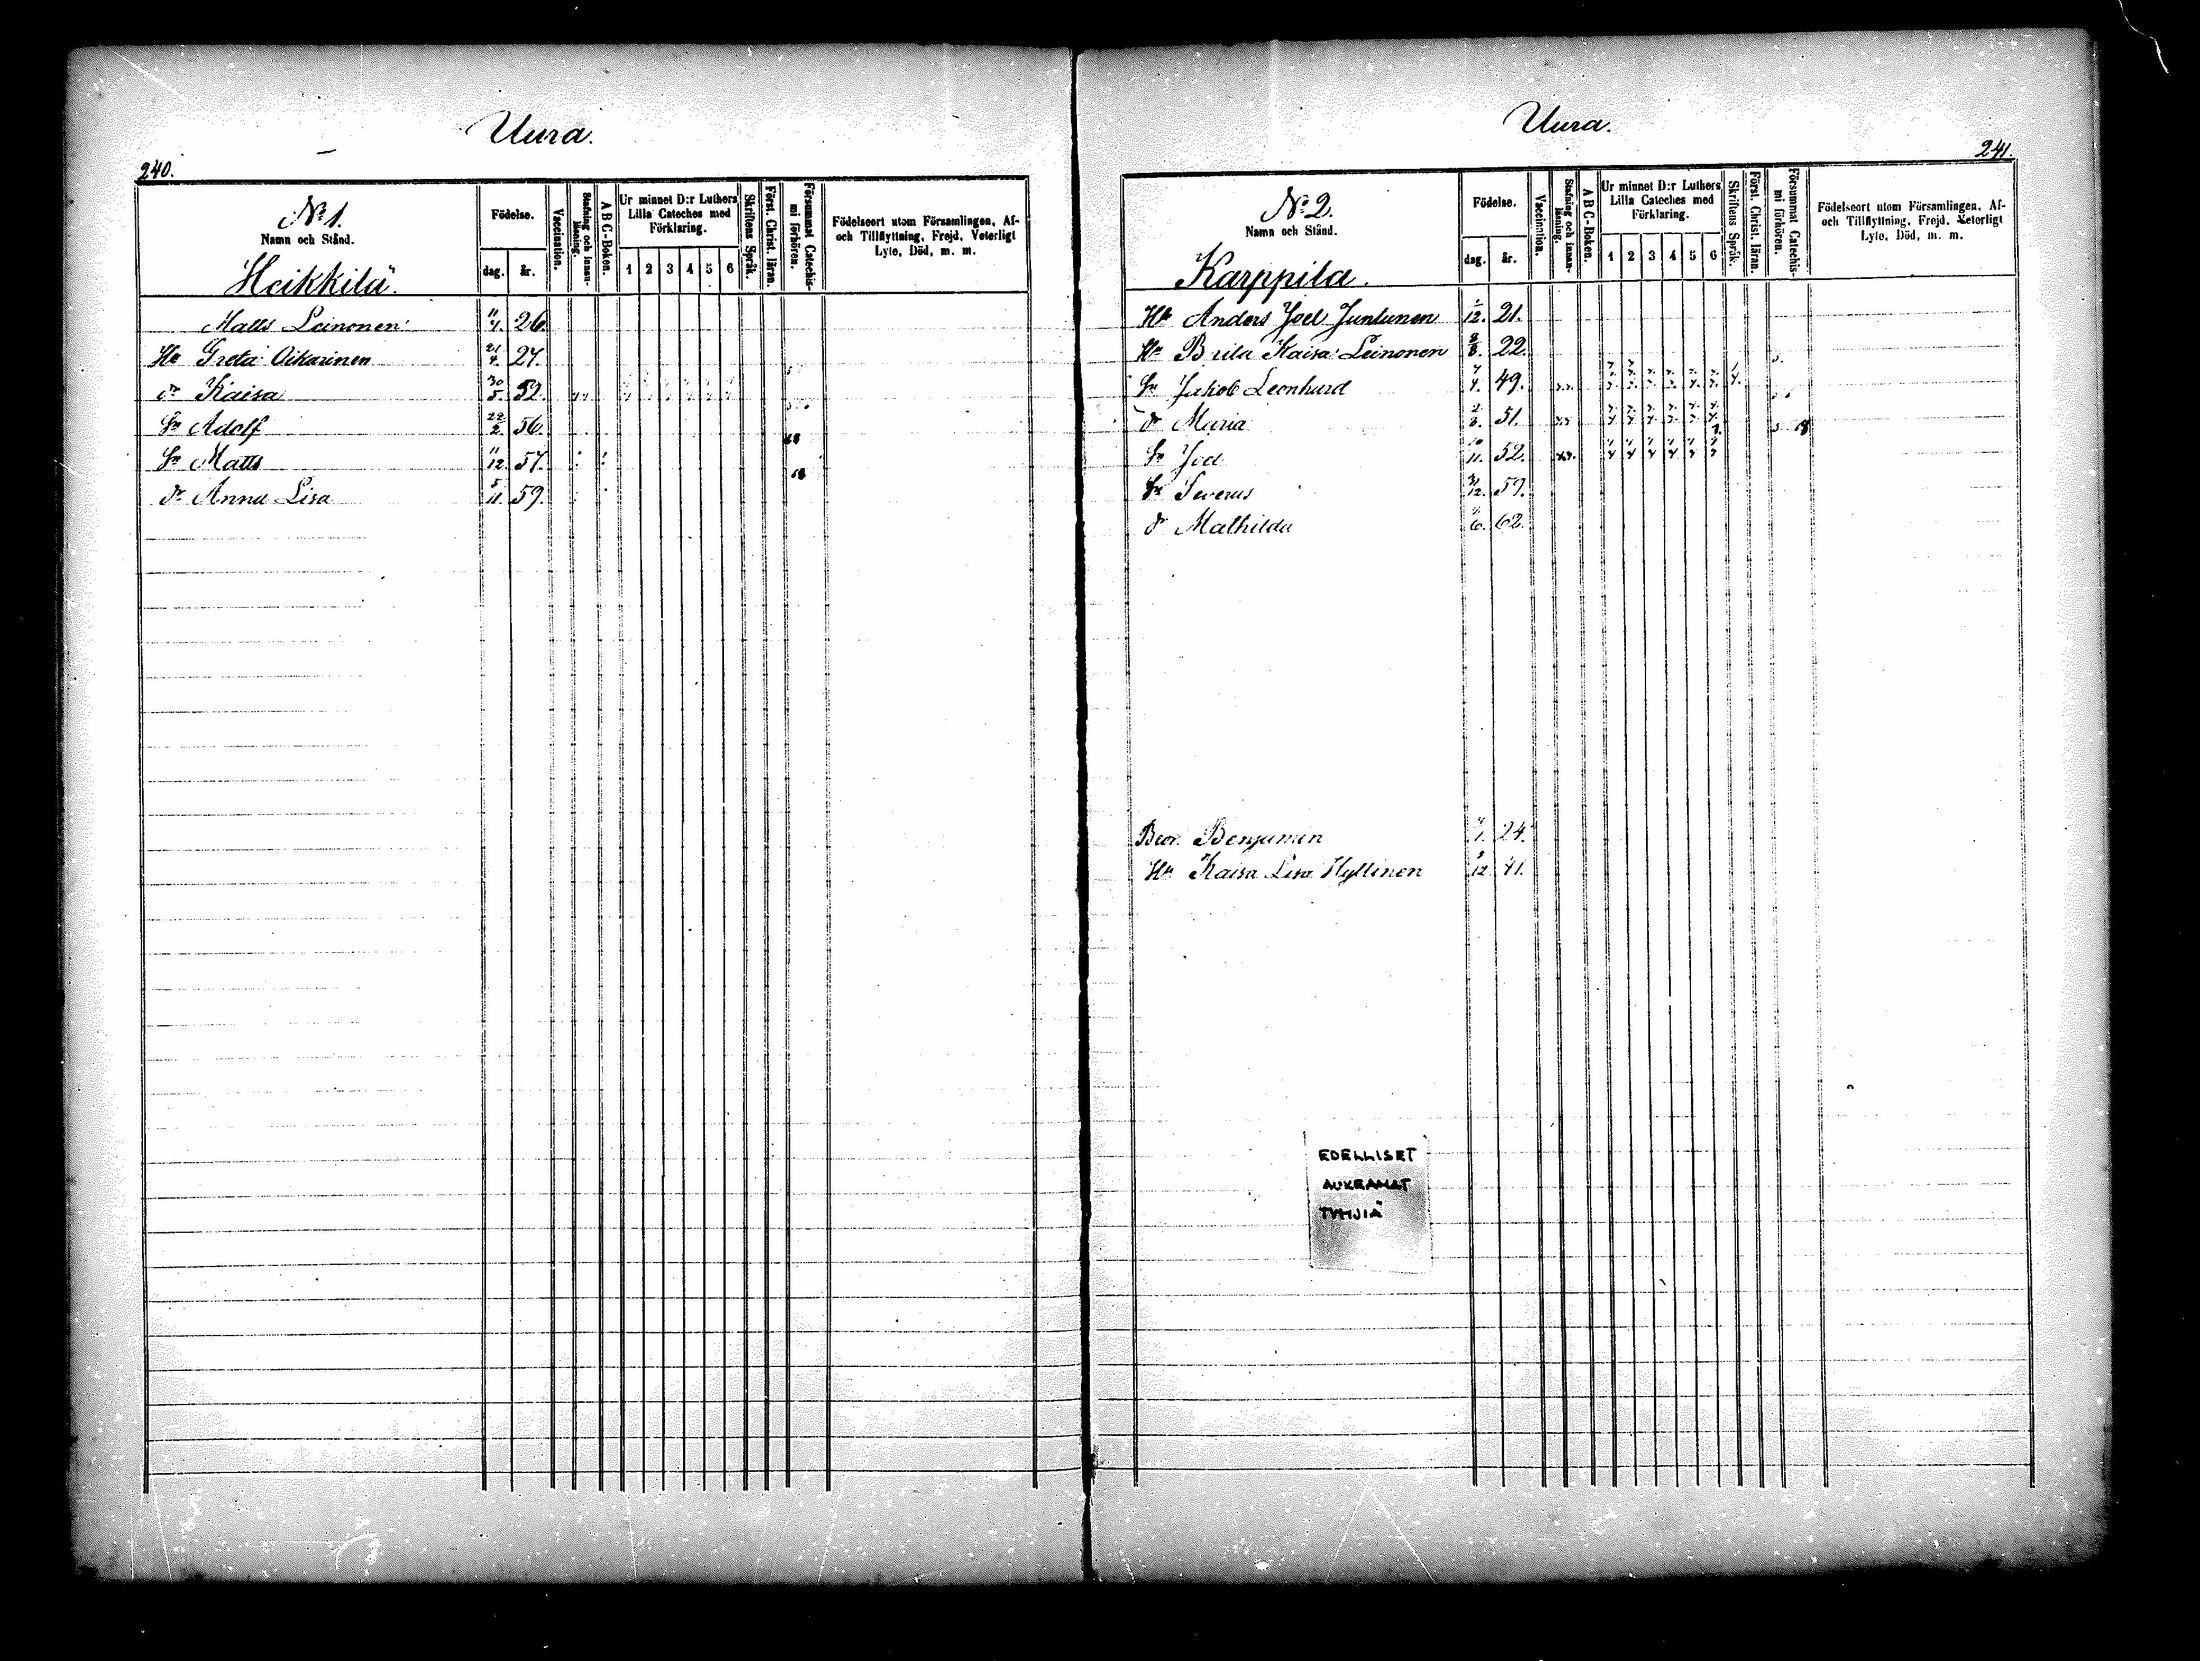 Uura.
240.
No 1.
Namn och Stånd.
Heikkilä.
Födelse.
dag. år.
Vaccination.
Stafning och innan-
läsning.
A B C-Boken.
Ur minnet D:r Luthers
Lilla Cateches med
Förklaring.
1 2 3 4 5 6
Skriftens Språk.
Först. Christ. läran.
Försummat Catechis-
mi förhören.
Födelseort utom Församlingen, Af-
och Tillflyttning, Frejd, Veterligt
Lyte, Död, m. m.
Matts Leinonen 26.
Hu Greta Oikarinen 21/4. 27.
dr Kaisa 30/5. 52.
Sn Adolf 22/2. 56.
Sn Matts 11/12. 57.
dr Anna Lisa 5/11. 59.
Uura.
241.
No 2.
Namn och Stånd.
Karppila.
Födelse.
dag. år.
Vaccination.
Stafning och innan-
läsning.
A B C-Boken.
Ur minnet D:r Luthers
Lilla Cateches med
Förklaring.
1 2 3 4 5 6
Skriftens Språk.
Först. Christ. läran.
Försummat Catechis-
mi förhören.
Födelseort utom Församlingen, Af-
och Tillflyttning, Frejd, Veterligt
Lyte, Död, m. m.
Anders Joel Juntunen 12. 21.
Hu Brita Kaisa Leinonen 22.
Sn Jakob Leonhard 49.
dr Maria 51.
Sn Joel 11. 52.
Sn Severus 31/12. 59.
dr Mathilda 6. 62.
Bror. Benjamin 1. 24.
Hu Kaisa Lisa Hyttinen 12. 41.
EDELLISET
AUKEAMAT
TYHJIÄ